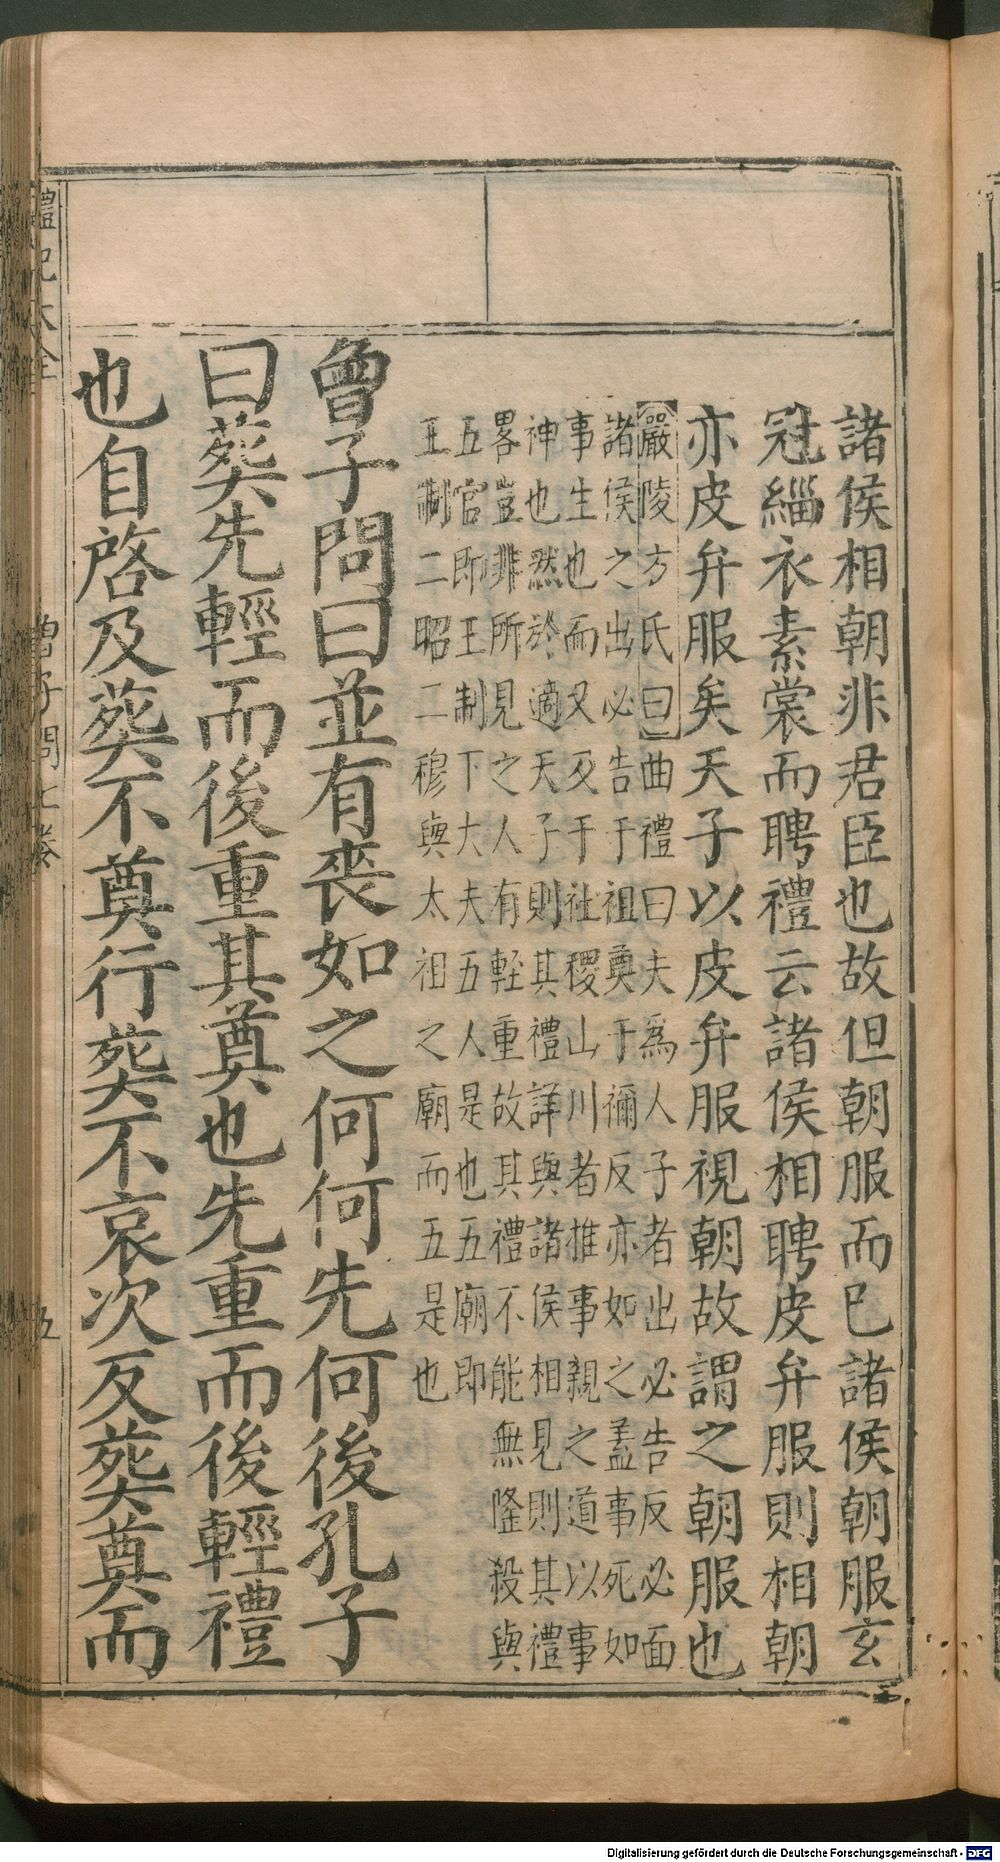 諸侯相朝非君臣也故但朝服而已諸侯朝服玄
冠緇衣素裳而聘禮云諸侯相聘皮弁服則相朝
亦皮弁服矣天子以皮弁服視朝故謂之朝服也
嚴陵方氏曰曲禮曰夫為人子者出必告反必面
諸侯之出必告于祖奠于禰反亦如之盖事死如
事生也而又及于社稷山川者推事親之道以事
神也然於適天子則其禮詳與諸侯相見則其禮
畧豈非所見之人有輊重故其禮不能無隆殺與
五官即王制下大夫五人是也五廟即
王制二昭二穆與太祖之廟而五是也
曾子問曰並有喪如之何何先何後孔子
曰葬先輕而後重其奠也先重而後輕禮
也自啓及葬不奠行葬不哀次反葬奠而
禮記大全
曾子問七卷
五
Digitalisierung gefördert durch die Deutsche Forschungsgemeinschaft - DFG